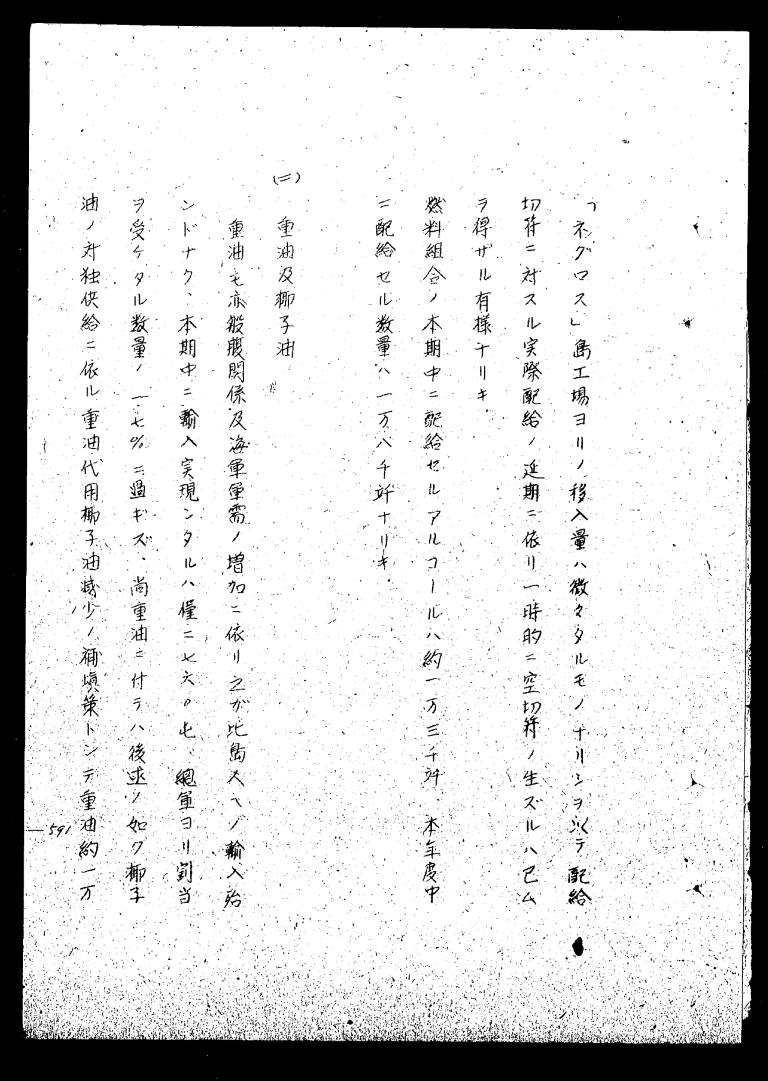 「ネグロス」島工場ヨリノ移入量ハ微々タルモノナリシヲ以テ配給
切符ニ対スル実際配給ノ延期ニ依リ一時的ニ空切符ノ生ズルハ已ム
ヲ得ザル有様ナリキ
燃料組合ノ本期中ニ配給セルアルコールハ約一万三千竏 本年度中
ニ配給セル数量ハ一万八千竏ナリキ
(二) 重油及椰子油
重油モ亦船腹関係及海軍軍需ノ増加ニ依リ之ガ比島ヘノ輸入殆
ンドナク、本期中ニ輸入実現シタルハ僅ニ七六〇屯、総軍ヨリ割当
ヲ受ケタル数量ノ一七%ニ過ギズ、尚重油ニ付テハ後述ノ如ク椰子
油ノ対独供給ニ依ル重油代用椰子油減少ノ補填策トシテ重油約一万
591